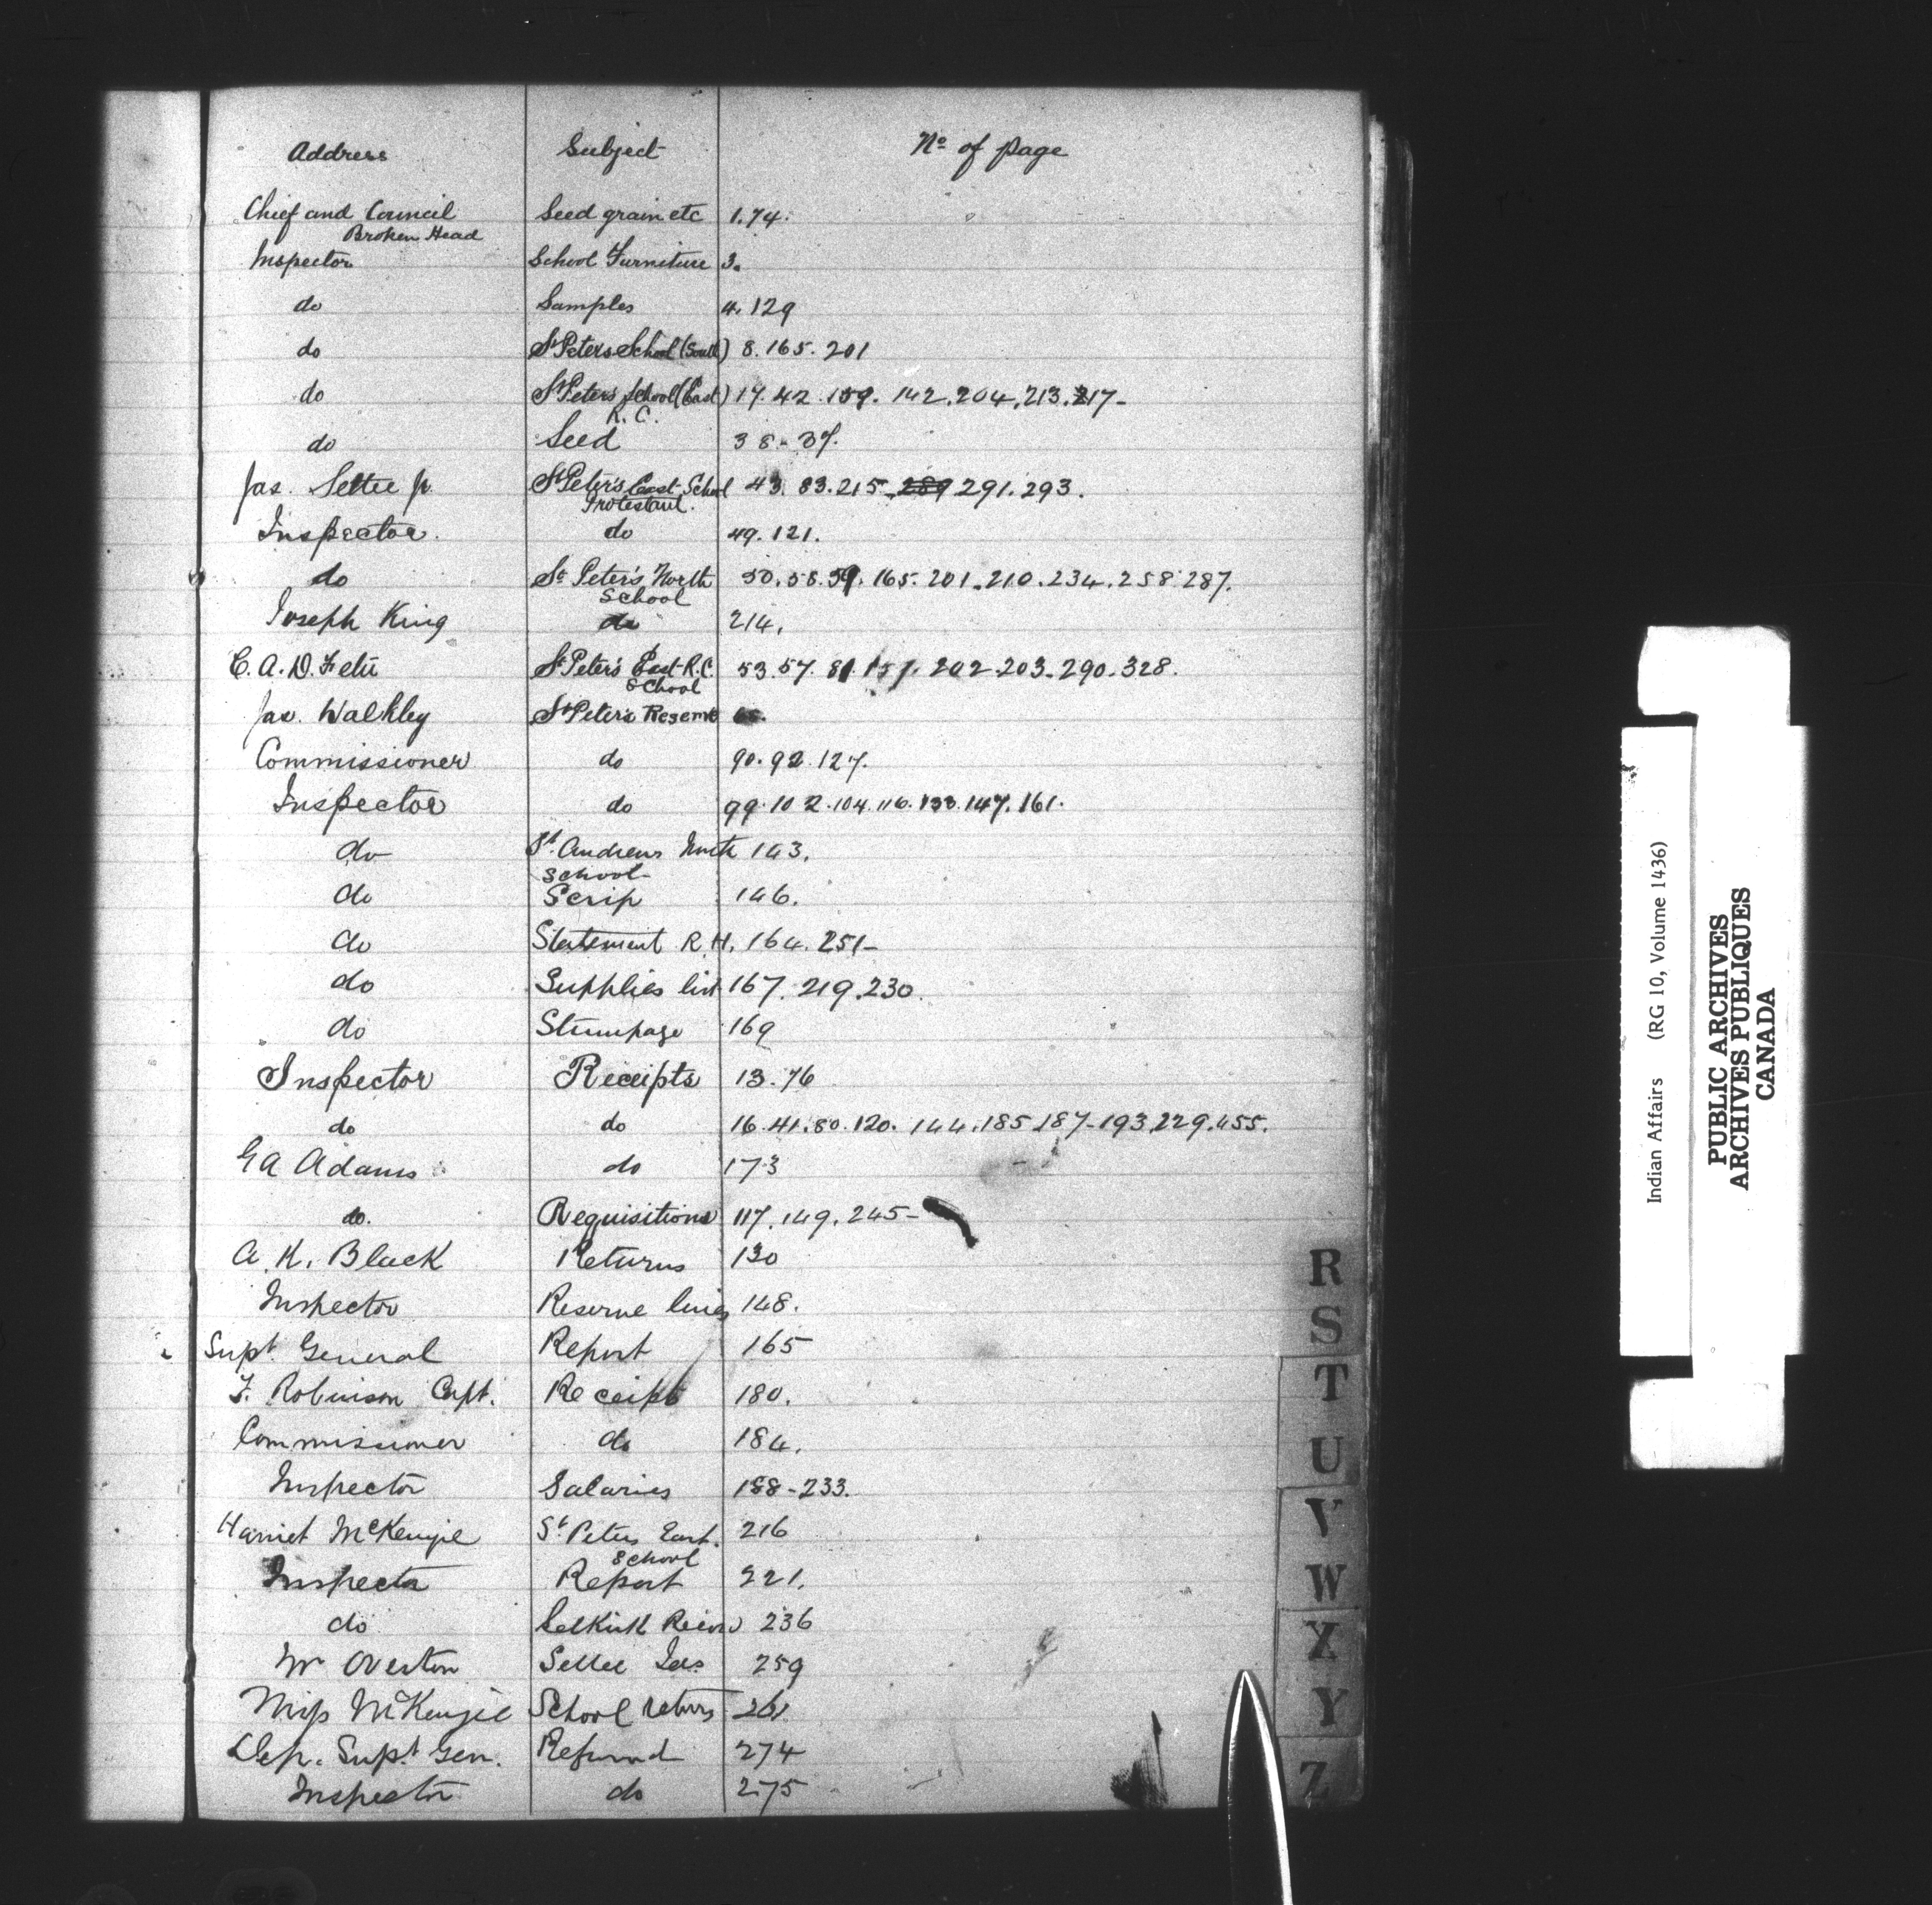 Address Subject No of page
Chief and Council Seed grain etc 1.74.
Broken Head
Inspector School Furniture 3.
do Samples 4.129
do St Peters School (South) 8.165.201
do St Peter's School (East) 17.42.159.142.204.213.217-
R.C.
do Seed 38-37.
Jas. Settee Jr. St Peter's East School 43.83.215.289 291.293.
Protestant.
Inspector. do 49.121.
do St Peter's North 50.58.59.165.201.210.234.258.287.
School
Joseph King do 214.
St Peter's East R.C. 53.57. 202-203.290.328.
School
Jas. Walkley St Peter's Reserve
Commissioner do 90.92.127.
Inspector do 99.102.104.116.133.147.161.
do St. Andrews North 143.
School
do Scrip 146.
do Statement R.H. 164.251-
do Supplies list 167.219.230.
do Stumpage 169
Inspector Receipts 13.76
do do 16.41.80.120.144.185.187-193.229.455.
GA Adams do 173
do. Requisitions 117.149.245-
A. K. Black Returns 130
Inspector Reserve lines 148.
Supt. General Report 165
F. Robinson Capt. Receipt 180.
Commissioner do 184.
Inspector Salaries 188-233.
Harriet McKenzie St. Peters East. 216
School
Inspector Report 221.
do Selkirk Record 236
Mr Overton Settee Jas. 259
Miss McKenzie School returns 261
Dep. Supt. Gen. Refund 274
Inspector do 275
R
S
T
U
V
W
X
Y
Z
Indian Affairs (RG 10, Volume 1436)
PUBLIC ARCHIVES
ARCHIVES PUBLIQUES
CANADA